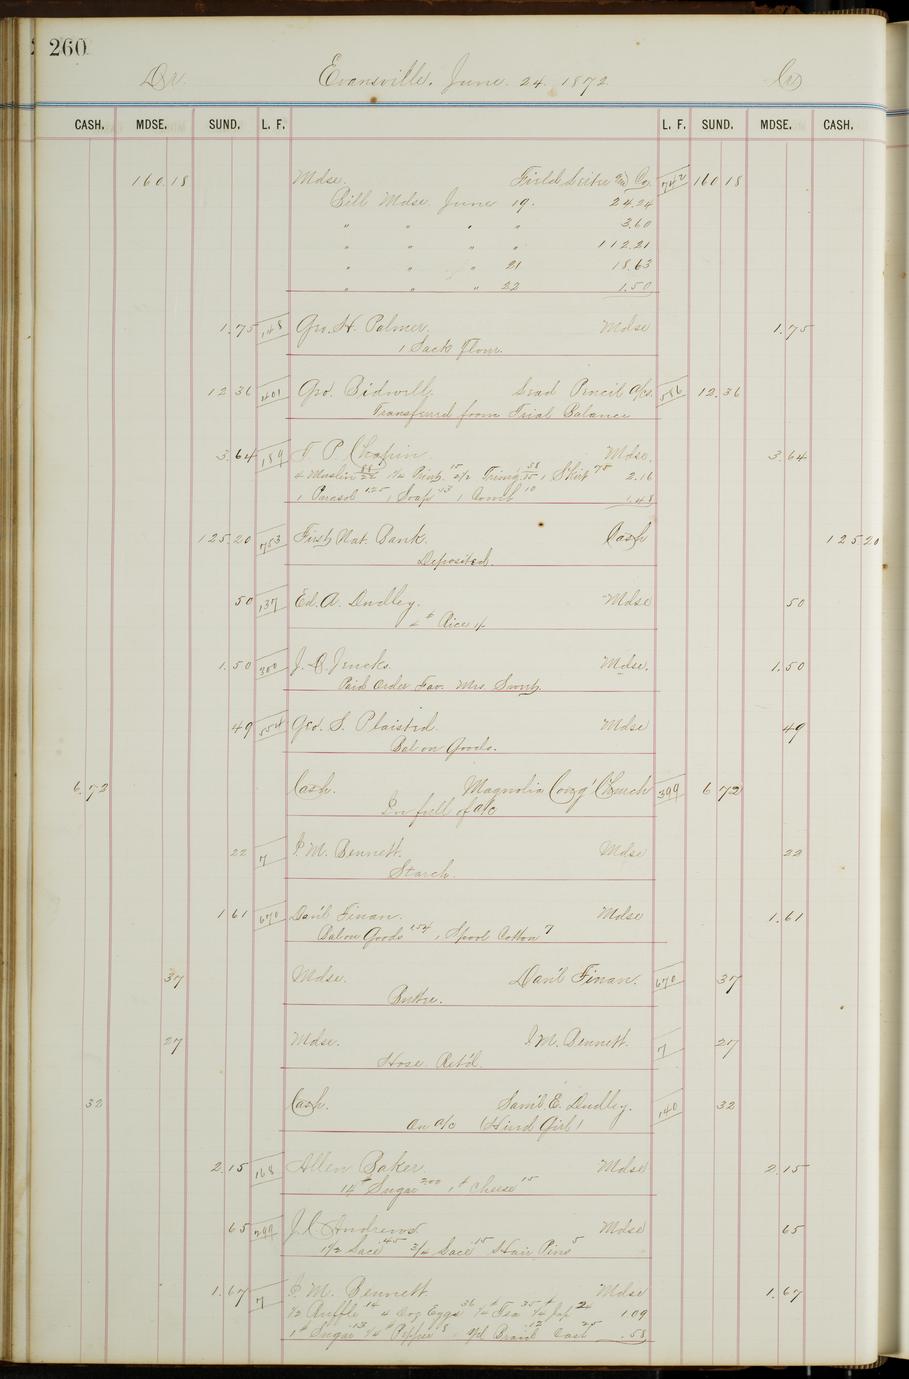 260
Dr. Evansville, June 24 1872 Cr
CASH. MDSE. SUND. L. F. L. F. SUND. MDSE. CASH.
160 18 Mdse. Field Leiter & Co. 742 160 18
Bill Mdse June 19. 24.24
" " " " 3.60
" " " " 112.21
" " " 21 18.63
" " " 22 1.50
1.75 148 Geo. H. Palmer. Mdse 1.75
1 Sack Flour.
12 36 401 Geo. Bidwell. Lead Pencil a/c. 586 12.36
Transferred from Trial Balance
3.64 189 T. P. Chapin. Mdse. 3.64
4 Muslin 88/22 1/2 Print 15 2/2 Trimg. 38/15 1 Skirt 75 2.16
1 Parasol 1.25 1 Soap 13 1 Comb 10 1.48
125.20 753 First Nat. Bank. Cash 125 20
Deposited.
50 137 Ed. A. Dudley. Mdse 50
4# Rice
1.50 300 J. C. Jencks. Mdse. 1.50
Paid Order Fav. Mrs.
49 554 Geo. S. Plaisted. Mdse 49
Bal on Goods.
6.72 Cash. Magnolia Cong'l Church 399 6 72
In full of a/c
22 7 I. M. Bennett. Mdse 22
Starch.
1 61 670 Dan'l Finan. Mdse 1.61
Bal on Goods 1.54 1 Spool Cotton 7
37 Mdse. Dan'l Finan. 670 37
Butter.
27 Mdse. I. M. Bennett. 7 27
Hose Ret'd.
32 Cash. Sam'l E. Dudley. 140 32
On a/c (Hired Girl)
2.15 168 Allen Baker. Mdse 2.15
14# Sugar 2.00 1# Cheese 15
65 299 J. C. Andrews. Mdse 65
1 1/2 Lace 45 3/4 Lace 15 Hair Pins 5
1.67 7 I. M. Bennett Mdse 1.67
1/2 Ruffle 14 4 Doz Eggs 36 1/4# Tea 35 1/4# Jap 24 1.09
1# Sugar 13 1/4# Pepper 8 Braid 12 Cash 25 .58